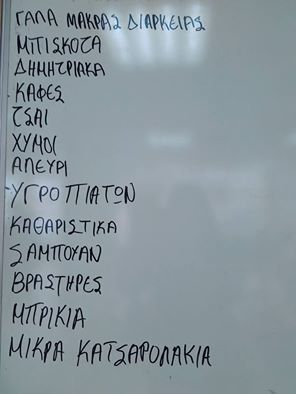 ΓΑΛΑ ΜΑΚΡΑΣ ΔΙΑΡΚΕΙΑΣ
ΜΠΙΣΚΟΤΑ
ΔΗΜΗΤΡΙΑΚΑ
ΚΑΦΕΣ
ΤΣΑΙ
ΧΥΜΟΙ
ΑΛΕΥΡΙ
-ΥΓΡΟ ΠΙΑΤΩΝ
ΚΑΘΑΡΙΣΤΙΚΑ
ΣΑΜΠΟΥΑΝ
ΒΡΑΣΤΗΡΕΣ
ΜΠΡΙΚΙΑ
ΜΙΚΡΑ ΚΑΤΣΑΡΟΛΑΚΙΑ